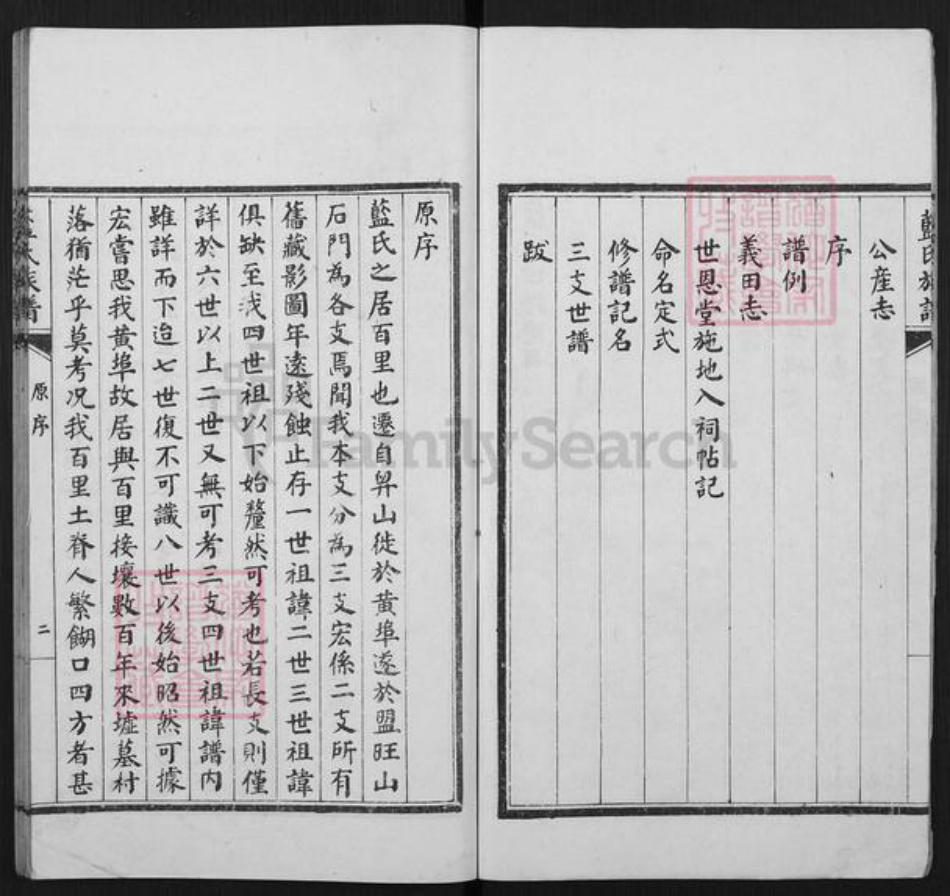 藍氏族譜
公產志
序
譜例
義田志
世恩堂施地入祠帖記
命名定式
修譜記名
三支世譜
跋
原序
藍氏之居百里也遷自昇山徙於黄埠遂於盟旺山
石門為各支焉聞我本支分為三支宏係二支所有
舊藏影圖年遠殘蝕止存一世祖諱二世三世祖諱
俱缺至我四世祖以下始釐然可考也若長支則僅
詳於六世以上二世又無可考三支四世祖諱譜内
雖詳而下迨七世復不可識八世以後始昭然可據
宏嘗思我黄埠故居與百里接壤數百年來墟墓村
落猶茫乎莫考况我百里土脊人繁餬口四方者甚
藍氏族譜
原序
二
FamilySearch